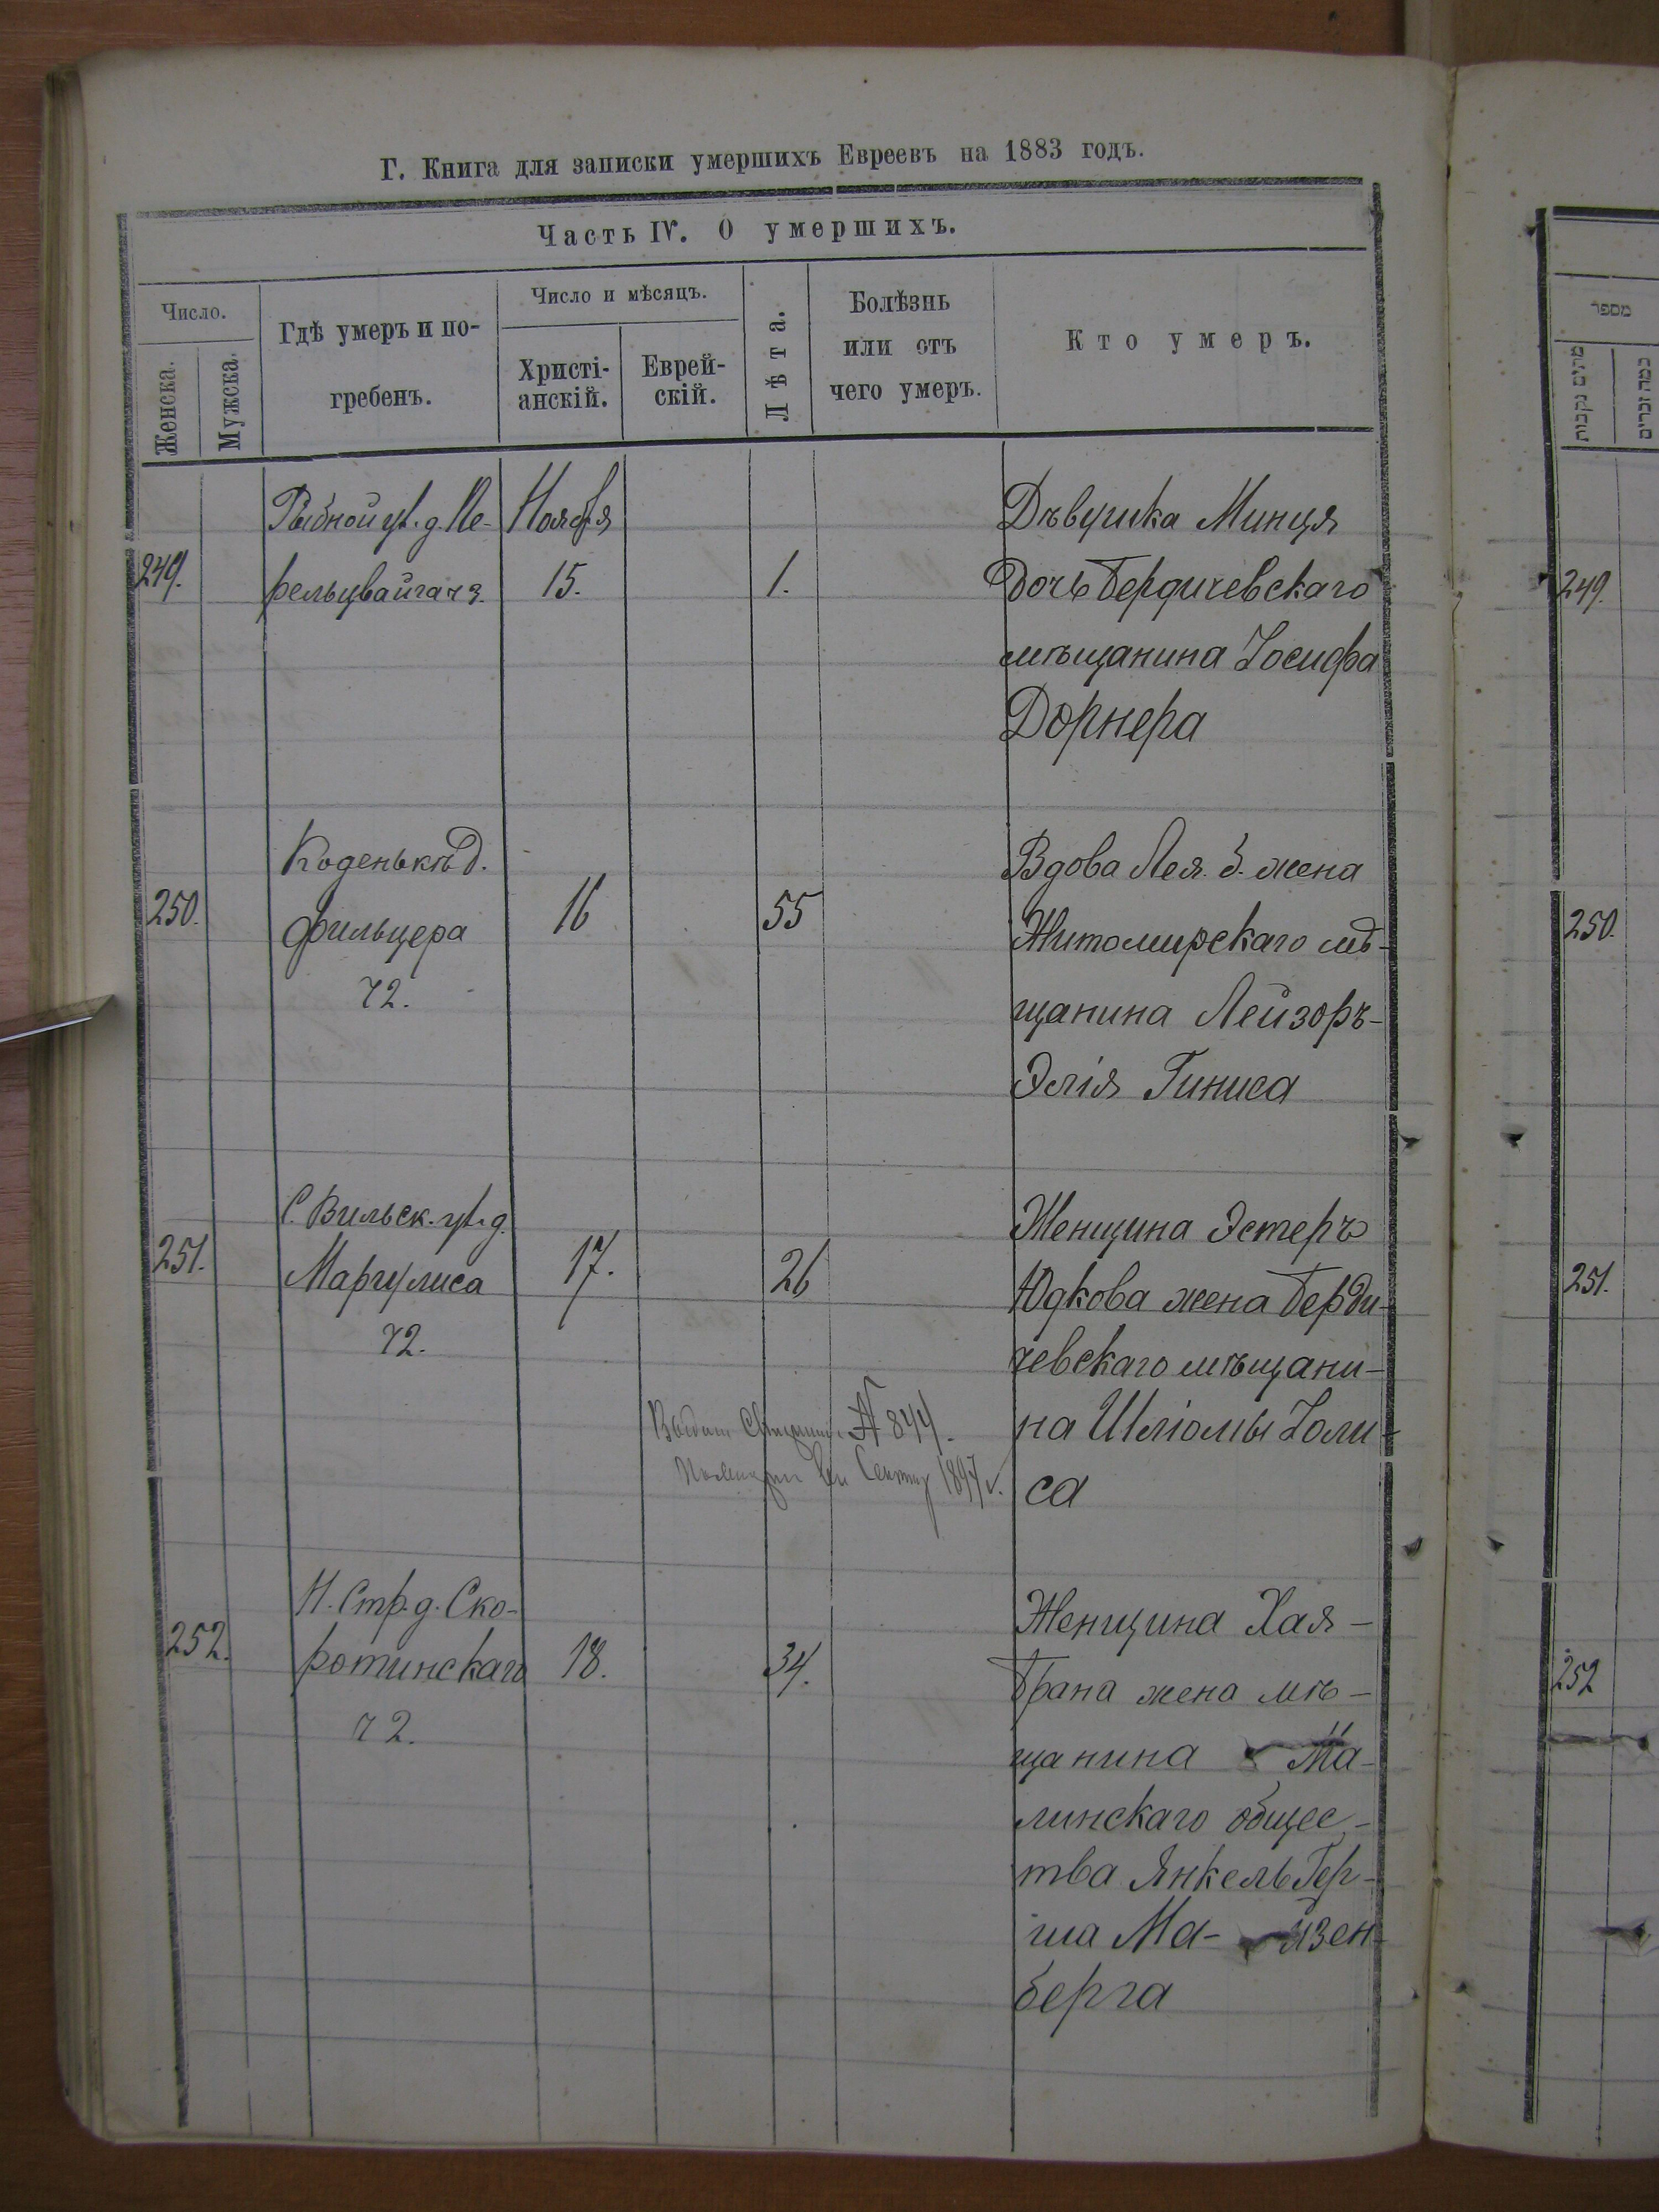 Г. Книга для записки умершихъ Евреевъ на 1883 годъ.
Часть IV. О умершихъ.
Число.
Женска.
Мужска.
Гдѣ умеръ и по-
гребенъ.
Число и мѣсяцъ.
Христі-
анскій.
Еврей-
скій.
Лѣта.
Болѣзнь
или отъ
чего умеръ.
Кто умеръ.
249.
Рыбной ул. д. Пе-
рельцвайгача.
Ноября
15.
1.
Дѣвушка Минця
дочь Бердичевскаго
мѣщанина Іосифа
Дорнера
250.
Коденькѣ д.
Фильцера
72.
16
55
Вдова Лея. б. жена
Житомирскаго мѣ-
щанина Лейзоръ-
Элія Гиниса
251.
С. Вильск. ул. д.
Маргулиса
72.
17.
26
Женщина Эстеръ
Юдкова жена Берди-
чевскаго мѣщани-
на Шліомы Іоли-
са
№ 844.
1897 г.
252.
Н. Стр. д. Ско-
ротинскаго
72.
18.
34.
Женщина Хая-
Брана жена мѣ-
щанина Ма-
линскаго общес-
тва Янкель Гер-
ша Ма- йзен-
берга
מספר
מתים נקבות
כמה זכרים
249.
250.
251.
252